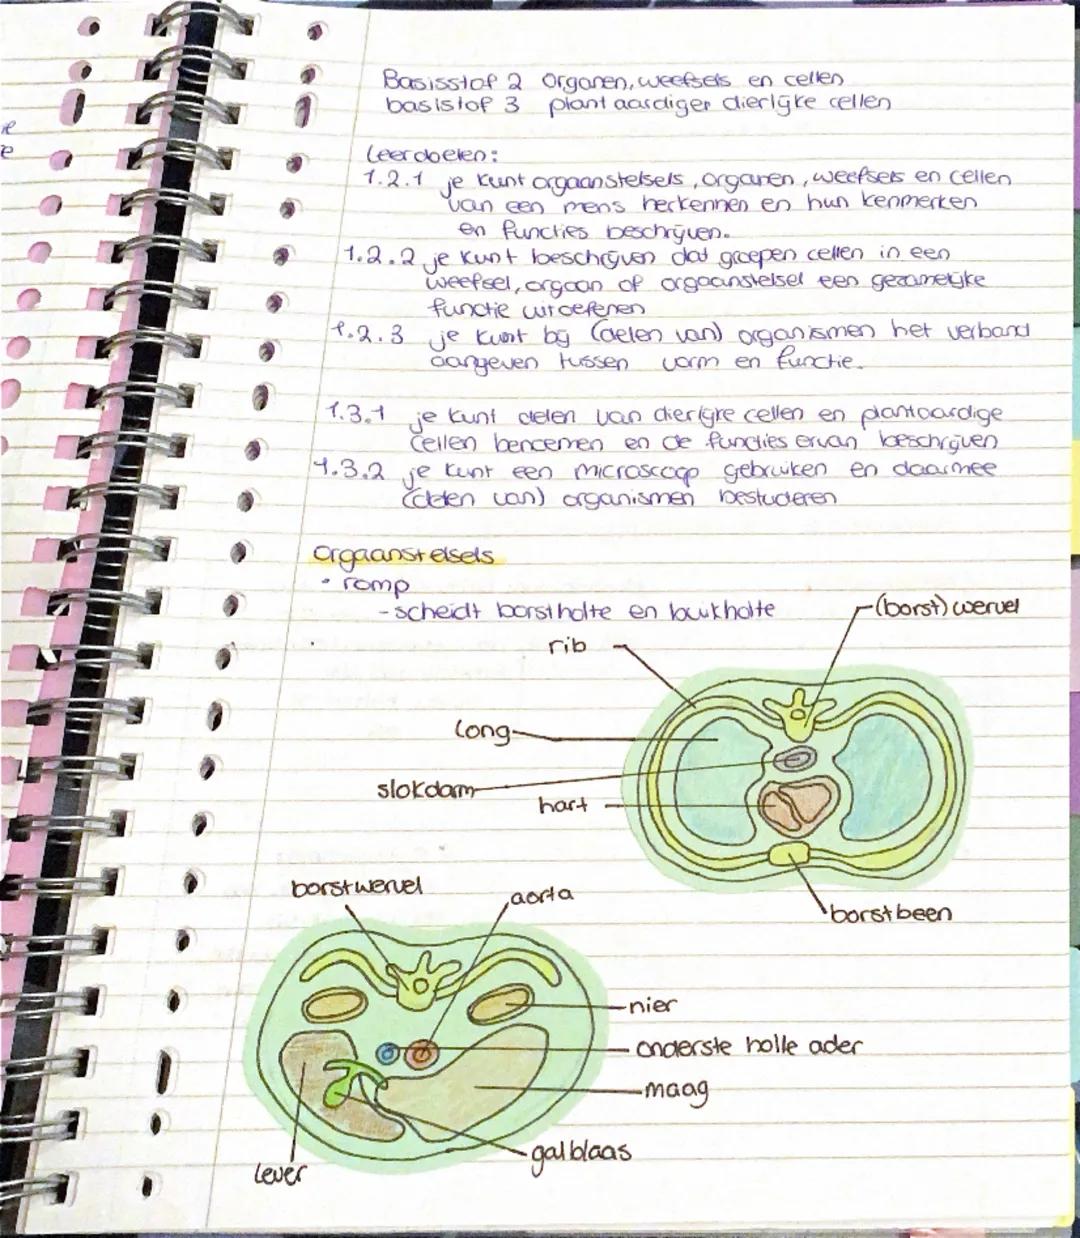 Basisstof 2 Organen, weefsels en cellen
basistof 3 plantaardiger dierlijke cellen
Leerdoelen:
1.2.1 je kunt orgaanstelsels, organen, weefsels en cellen
van een mens herkennen en hun kenmerken
en functies beschrijven.
1.2.2 je kunt beschrijven dat groepen cellen in een
weefsel, orgaan of orgaanstelsel een gezamelijke
functie uitoefenen
1.2.3 je kunt bij (delen van) organismen het verband
aangeven tussen vorm en functie.
1.3.1 je kunt delen van dierlijke cellen en plantaardige
cellen benoemen en de functies ervan beschrijven
1.3.2 je kunt een microscoop gebruiken en daarmee
(delen van) organismen bestuderen
Orgaanstelsels
• romp
- scheidt borstholte en buikholte
(borst) wervel
rib
long
slokdarm
hart
borstbeen
borstwervel
aorta
nier
onderste holle ader
maag
galblaas
lever